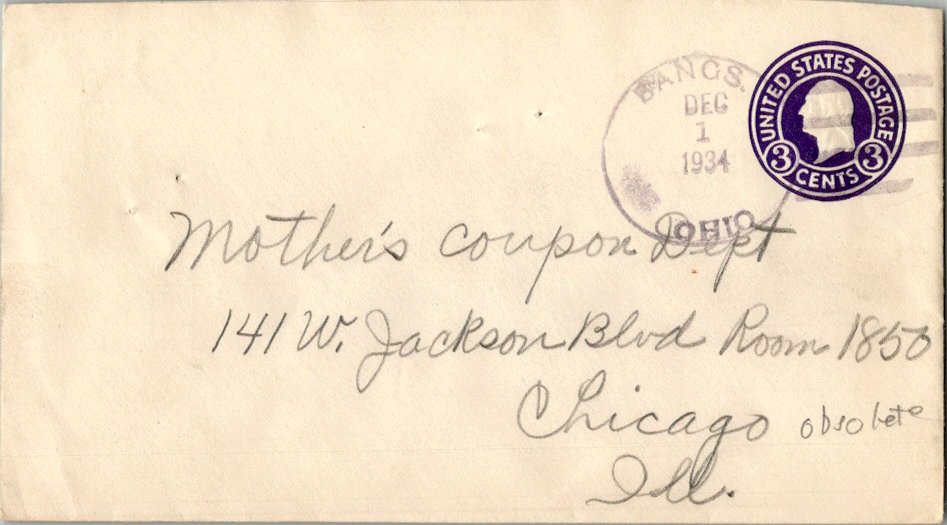 BANGS.
DEC
1
1934
OHIO
UNITED STATES POSTAGE
3 CENTS 3
Mother's Coupon Dept
141 W. Jackson Blvd Room 1850
Chicago obsolete
Ill.